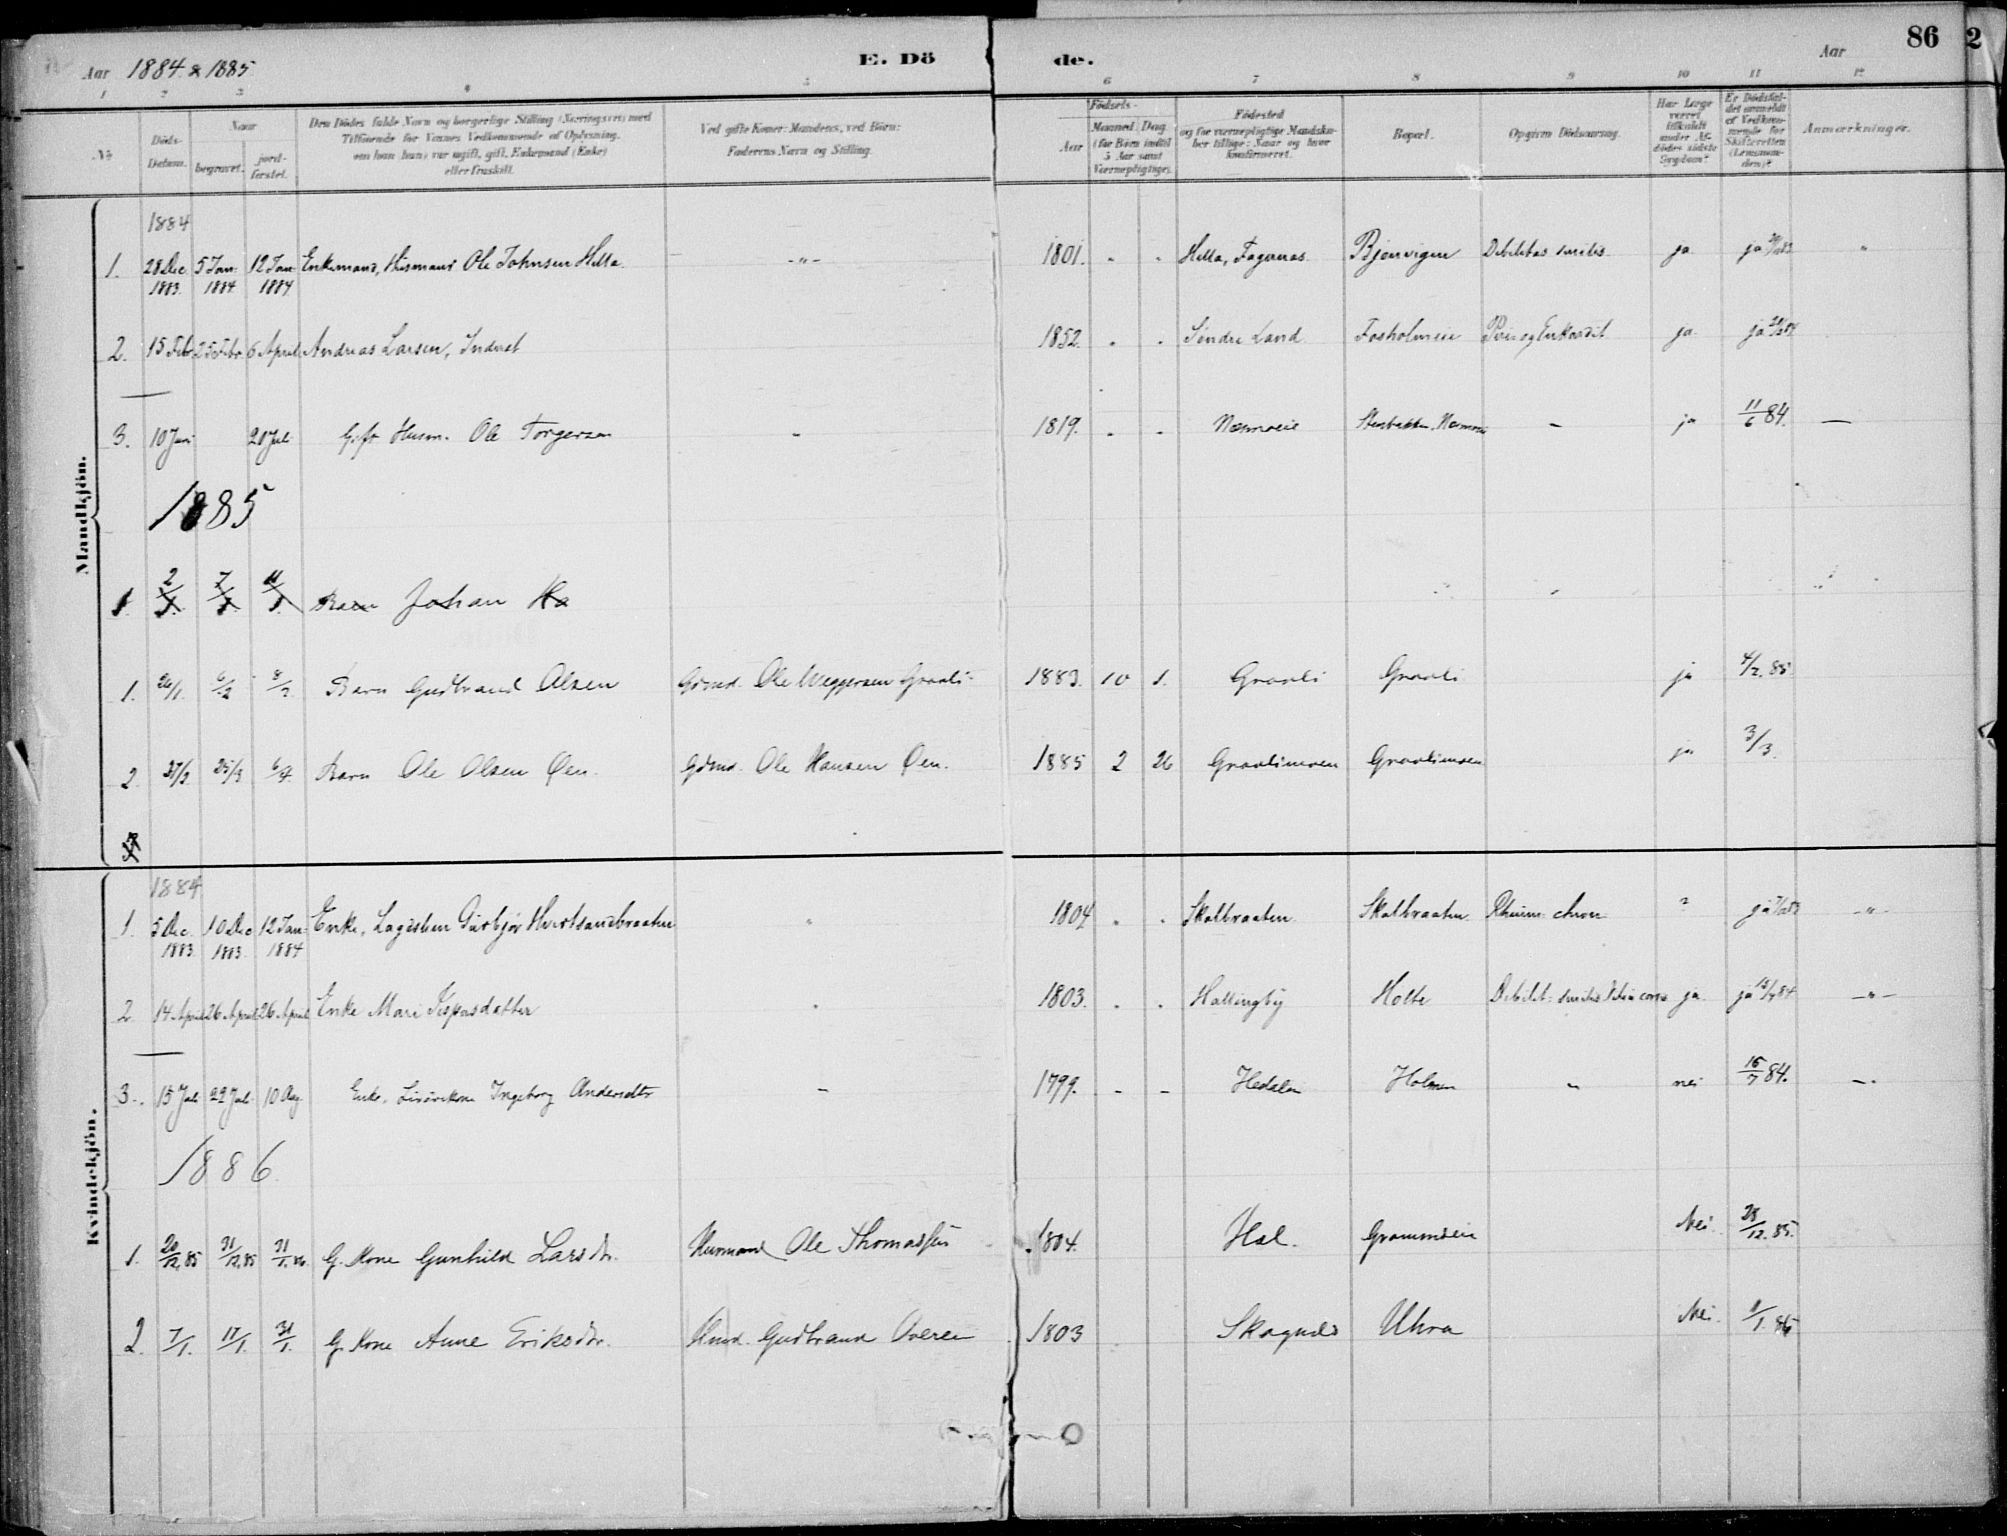 Aar 1884 & 1885
E. Döde.
Aar
86
2
1 2 3 4 5 6 7 8 9 10 11 12
No
Döds-Datum.
Naar
begravet.
jord-fæstet.
Den Dødes fulde Navn og borgerlige Stilling (Næringsvei) med
Tilföiende for Voxnes Vedkommende af Oplysning,
om han (hun) var ugift, gift, Enkemand (Enke)
eller fraskilt.
Ved gifte Koner: Mandens, ved Börn:
Faderens Navn og Stilling.
Födsels-
Aar
Maaned. Dag
(for Börn indtil
5 Aar samt
Værnepligtige).
Födested
og for værnepligtige Mandskaber tillige: Naar og hvor konfirmeret.
Bopæl.
Opgiven Dödsaarsag.
Har Læge været tilkaldt under den dödes sidste Sygdom?
Er Dödsfaldet anmeldt af Vedkommende for Skifteretten (Lensmanden)?
Anmærkninger.
Mandkjön.
1884
1. 28 Dec 1883. 5 Jan. 1884. 12 Jan 1884 Enkemand, Husmand Ole Johnsen Hella. -"- 1801. " " Hella, Fagernas Bjonvigen Debilitas senilis. ja ja "
2. 15 Feb 25 Febr 6 April Andreas Larsen, Inderst 1852. " " Søndre Land Fosholmeie ja ja
3. 10 Juni 20 Juli Gift Husm. Ole Torgersen " 1819. " " Næsmoeie Stenbakken, Næsmoeie - ja 11/6 84. —
1885
1. 2/1. 7/1. 11/1. Barn Johan Ha
1. 26/1. 6/2 8/2. Barn Gudbrand Olsen Gdmd. Ole Weggersen Graali 1883. 10 1. Graali Graali ja 4/2. 85
2 27/2 25/3 6/4 Barn Ole Olsen Øen. Gdmd. Ole Hansen Øen. 1885 2 26 Graalimoen Graalimoen ja 3/3.
Kvindekjön.
1884
1. 5 Dec. 1883. 10 Dec 1883. 12 Jan. 1884 Enke, Lægdslem Gurbjør Hvertsandbraaten " 1804 " " Skolbraaten Skolbraaten Rheum. chron ? ja -"-
2 14 April 26 April 26 April Enke Mari Jespersdatter " 1803. " " Hallingby Holte Debilit. senilis ja ja 15/4 84 -"-
3. 15 Juli 29 Juli 10 Aug Enke, Ingeborg Andersdtr - 1799. - - Hedalen Holmen " nei 15/7 84. —
1886
1. 20/12.85 31/12.85 31/1.86. G. Kone Gunhild Larsdr. Husmand Ole Thomassen 1804. Hal. Grammeie Nei 28/12. 85.
2. 7/1. 17/1. 31/1. G. Kone Anne Eriksdr. Hmd. Gudbrand Aaveren 1803 Skagnes Uhra Nei. 9/1. 86